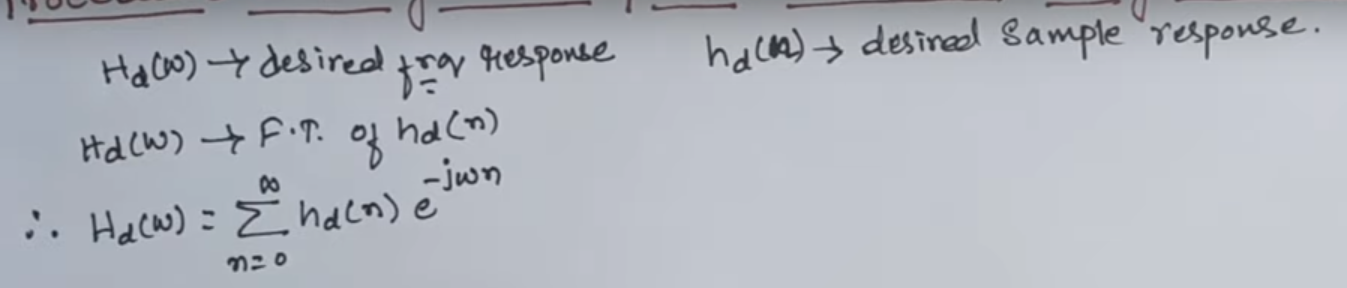 Hd(ω) → desired frq response hd(n) → desired sample response.
Hd(ω) → F.T. of hd(n)
∴ Hd(ω) = ∑_{n=0}^{∞} hd(n) e^{-jωn}